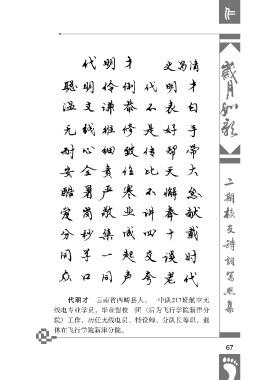 代明才 史昌清
聪明伶俐代明才
温文谦恭不表白
无线维修是好手
耐心细致传帮带
安全责任比天大
酷暑严寒不懈怠
爱岗敬业讲奉献
分秒集成四十载
同学一起交谈时
众口同声夸老代
代明才 云南省西畴县人。一中队217班航空无
线电专业学员。毕业留校一团（后为飞行学院新津分
院）工作。历任无线电员、特设师、分队长等职。退
休在飞行学院新津分院。
岁月如歌
二期校友诗词写照集
67